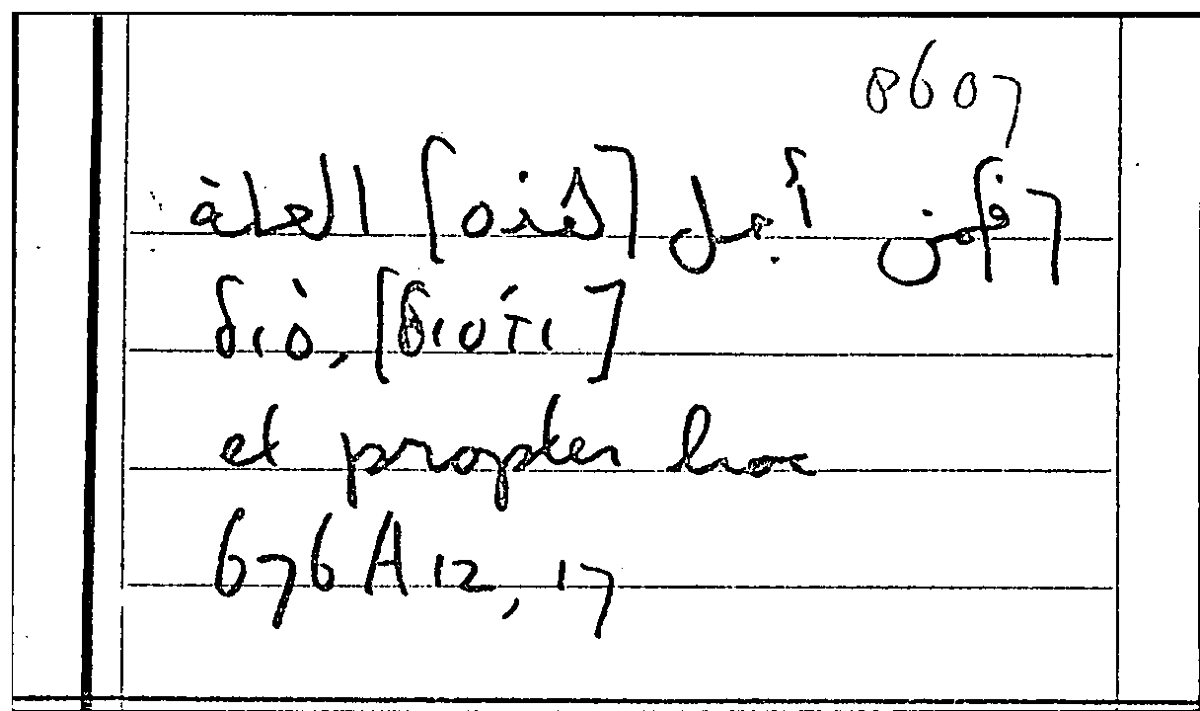 0607
[ف]من أجل [هذه] العلة
διὸ, [διότι]
et propter hoc
676A12, 17